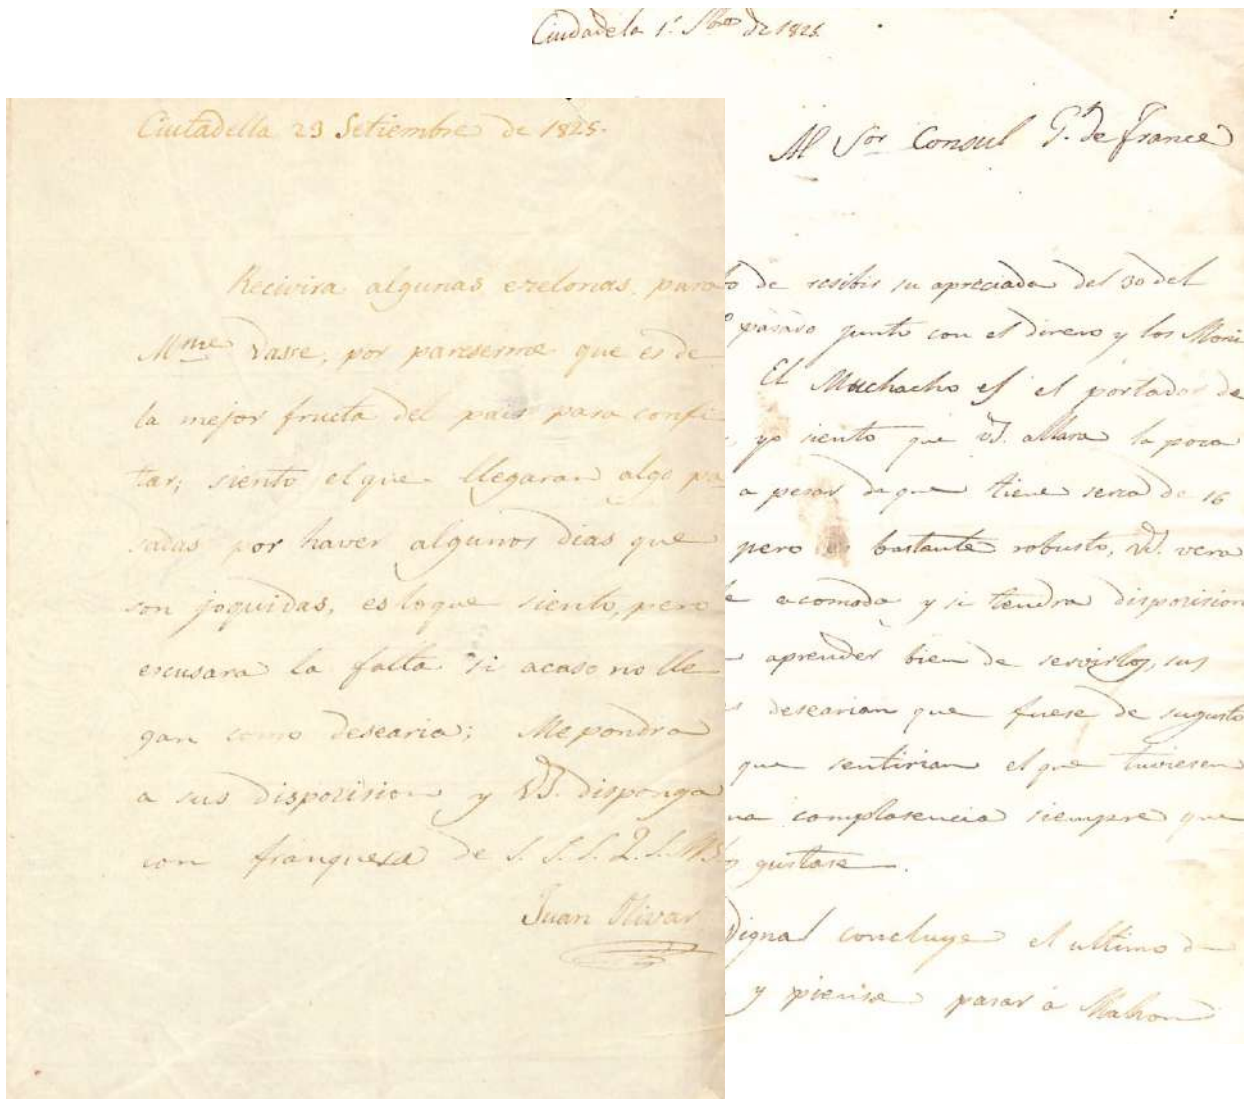 Ciutadella 23 Setiembre de 1825.
Recivira algunas ezelonias, para
Mme Vasse, por pareserme que es de
la mejor fructa del pais para confi
tar; siento el que llegaran algo pa
sadas por haver algunos dias que
son joquidas, es loque siento, pero
escusara la falta si acaso no lle
gan como desearia; Me pondra
a sus disposision y Vd. disponga
con franquesa de S. S. S. Q. S. M. B.
Juan
Ciudadela 1º de 1825
Al Sor Consul Gl. de France
de resibir su apreciada del 30 del
pasado junto con el dinero y los
El Muchacho es el portador de
yo siento que Vd. allara la poca
a pesar de que tiene serca de 16
pero es bastante robusto, Vd. vera
acomoda y si tendra disposision
aprender bien de servirlos, sus
desearian que fuese de sugusto
que sentirian el que tuviesen
complasencia siempre que
gustase.
concluye el ultimo de
y piensa pasar a Mahon